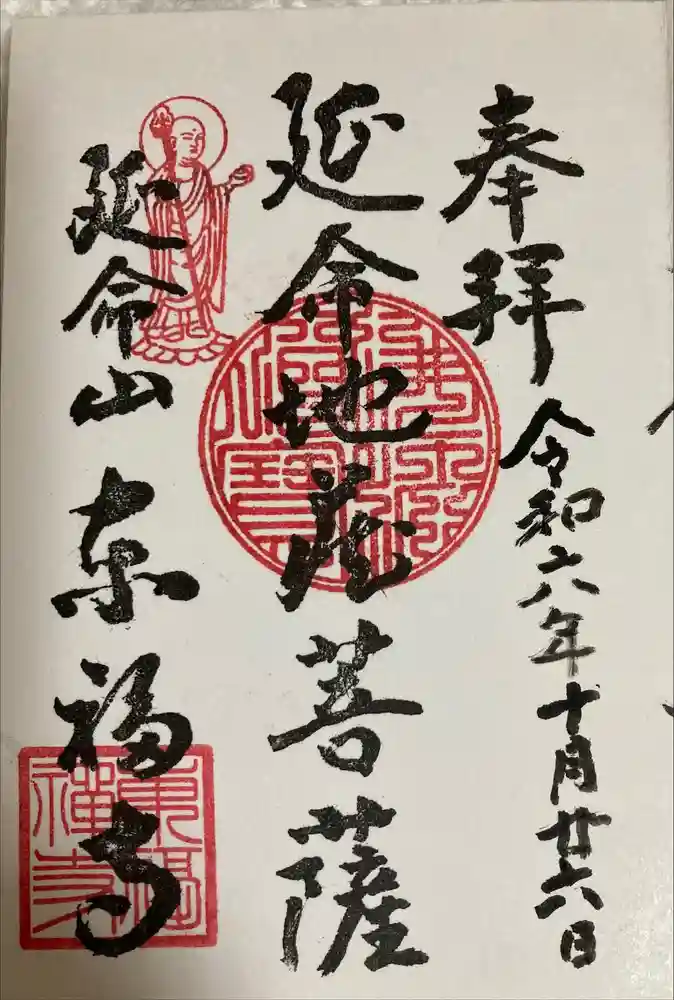 奉拝
令和六年十月廿六日
延命地蔵菩薩
延命山
東福寺
佛法僧寶
東福禅寺